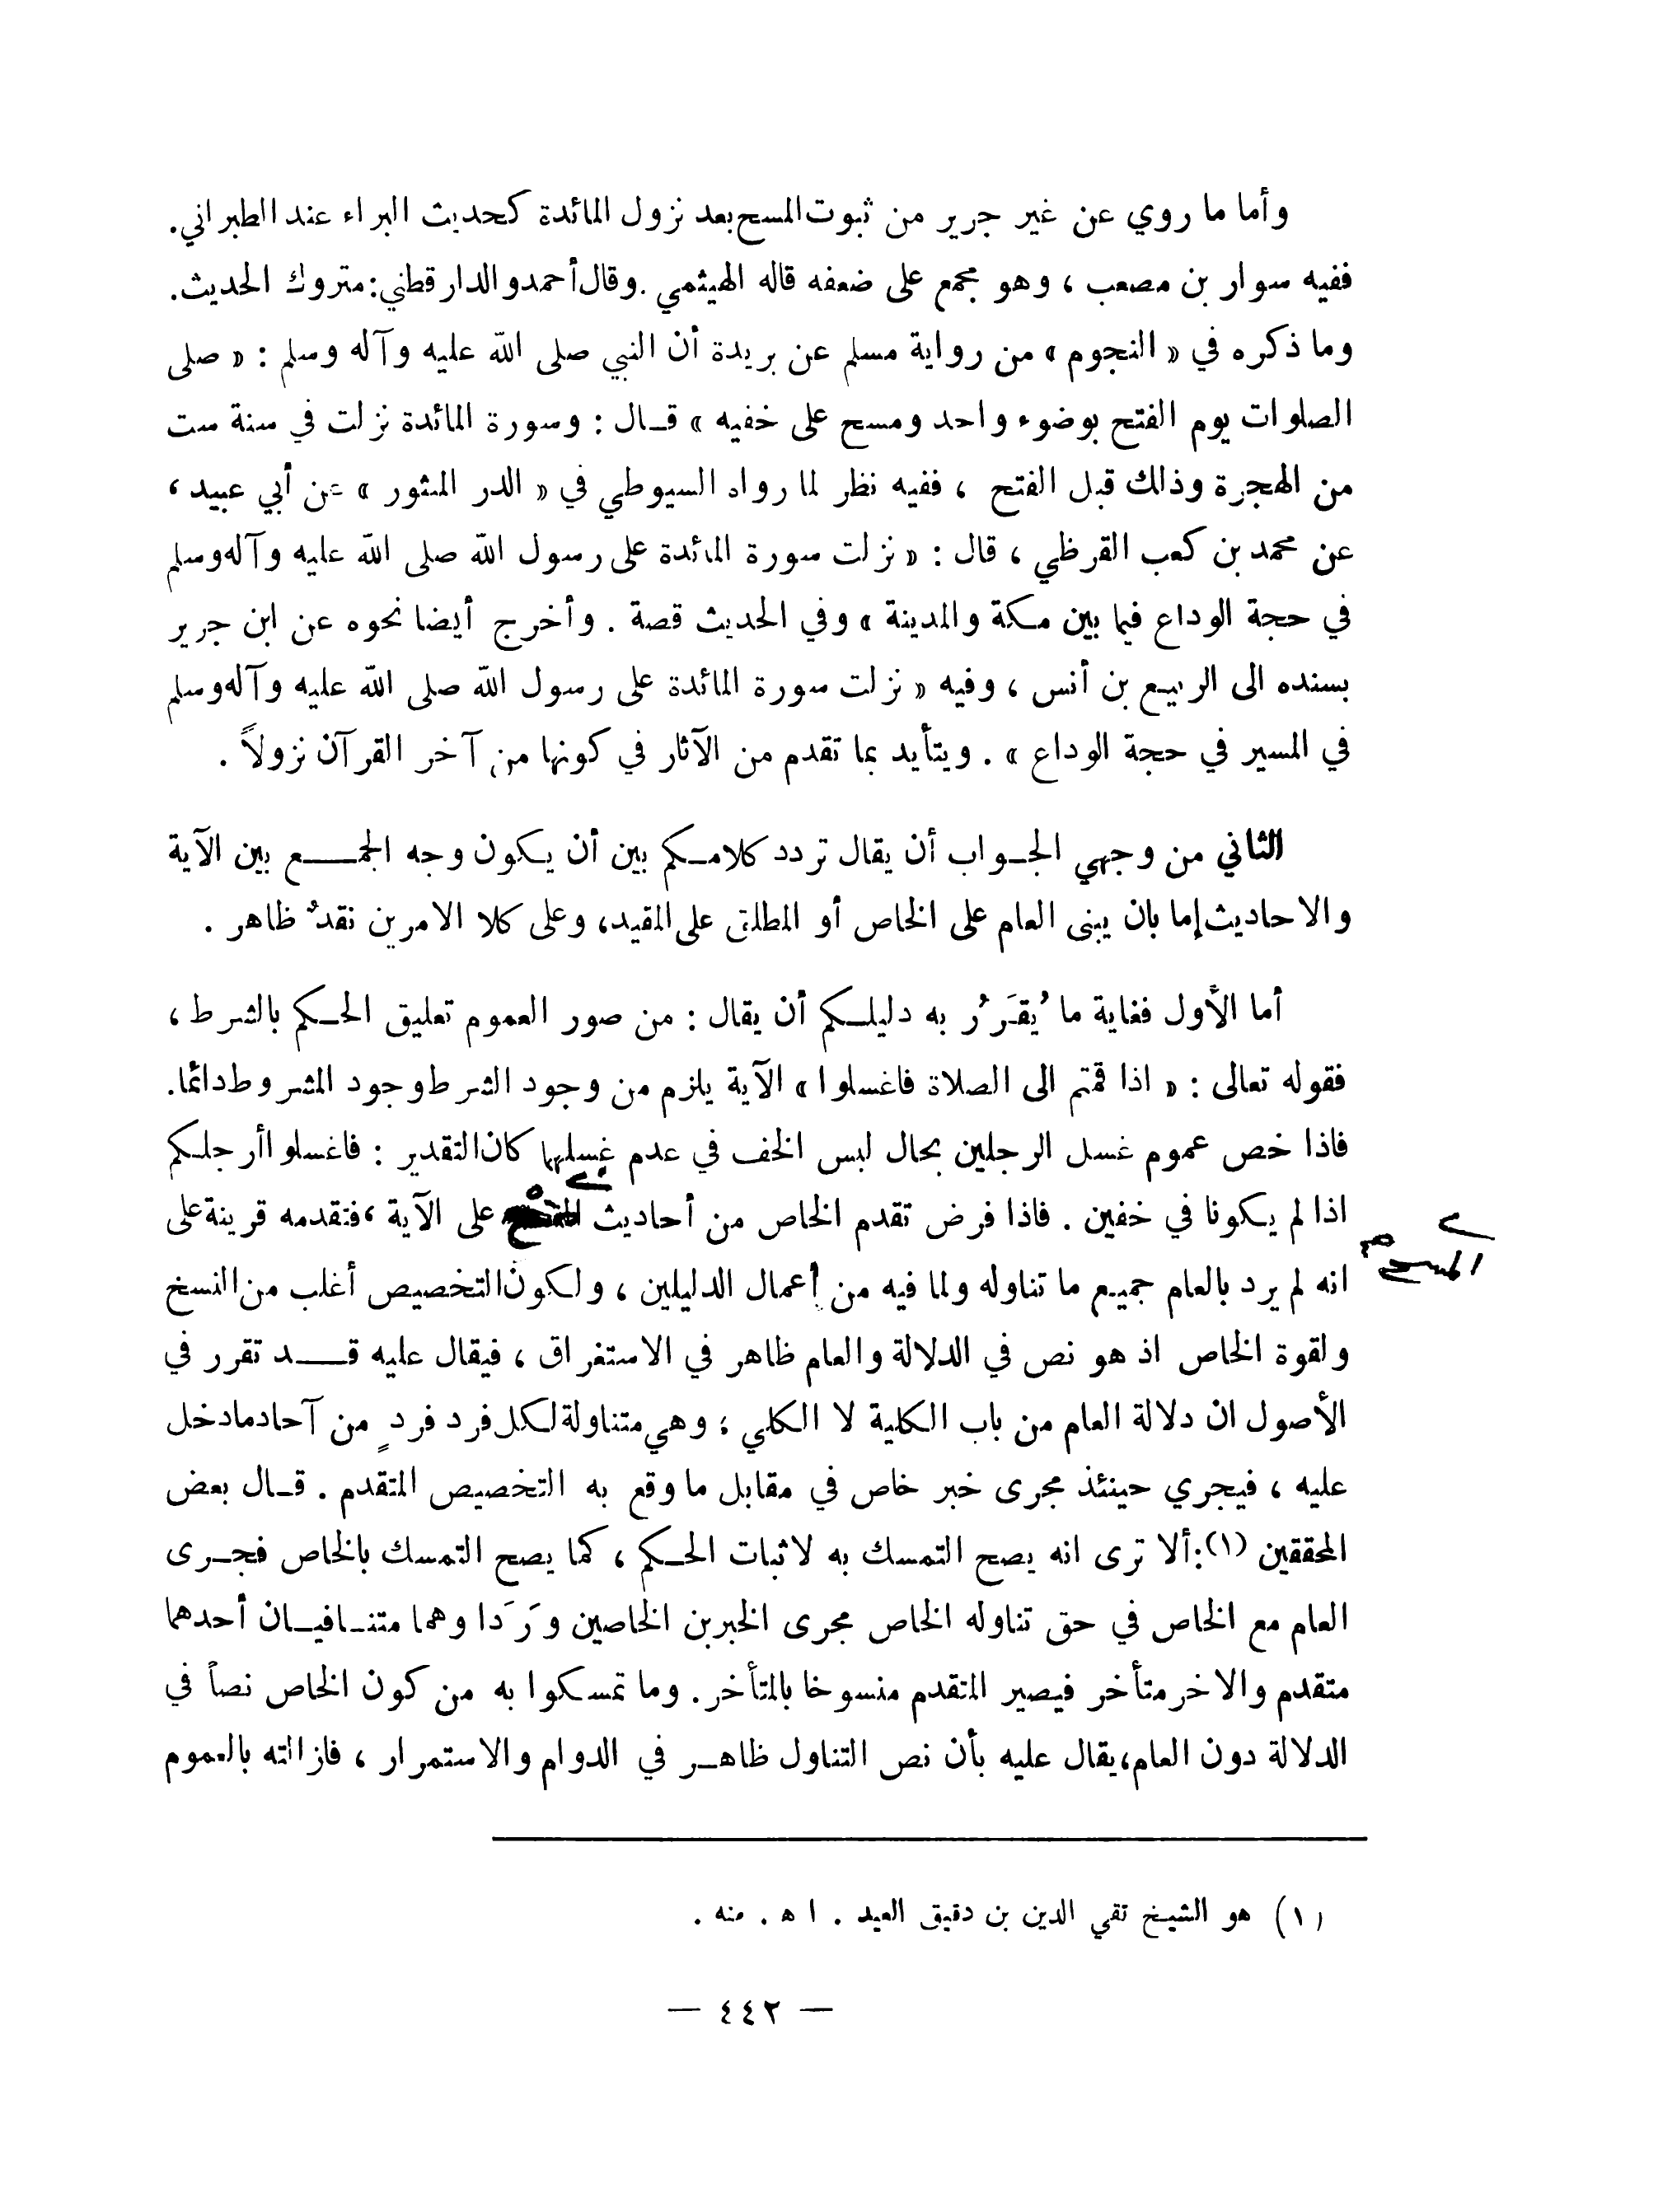 وأما ما روي عن غير جرير من ثبوت المسح بعد نزول المائدة كحديث البراء عند الطبراني.
ففيه سوار بن مصعب ، وهو مجمع على ضعفه قاله الهيثمي . وقال أحمد والدارقطني : متروك الحديث.
وما ذكره في « النجوم » من رواية مسلم عن بريدة أن النبي صلى الله عليه وآله وسلم : « صلى
الصلوات يوم الفتح بوضوء واحد ومسح على خفيه » قـال : وسورة المائدة نزلت في سنة ست
من الهجرة وذلك قبل الفتح ، ففيه نظر لما رواه السيوطي في « الدر المنثور » عن أبي عبيد ،
عن محمد بن كعب القرظي ، قال : « نزلت سورة المائدة على رسول الله صلى الله عليه وآله وسلم
في حجة الوداع فيما بين مكة والمدينة » وفي الحديث قصة . وأخرج أيضا نحوه عن ابن جرير
بسنده الى الربيع بن أنس ، وفيه « نزلت سورة المائدة على رسول الله صلى الله عليه وآله وسلم
في المسير في حجة الوداع » . ويتأيد بما تقدم من الآثار في كونها من آخر القرآن نزولاً .
الثاني من وجهي الجـواب أن يقال تردد كلامـكم بين أن يـكون وجه الجمـع بين الآية
والاحاديث إما بان يبنى العام على الخاص أو المطلق على المقيد، وعلى كلا الامرين نقدٌ ظاهر .
أما الأول فغاية ما يُقَرَرُ به دليلـكم أن يقال : من صور العموم تعليق الحـكم بالشرط ،
فقوله تعالى : « اذا قمتم الى الصلاة فاغسلوا » الآية يلزم من وجود الشرط وجود المشروط دائما.
فاذا خص عموم غسل الرجلين بحال لبس الخف في عدم غسلهما كان التقدير : فاغسلوا أرجلـكم
اذا لم يـكونا في خفين . فاذا فرض تقدم الخاص من أحاديث على الآية ، فتقدمه قرينة على
المسح
انه لم يرد بالعام جميع ما تناوله ولما فيه من إعمال الدليلين ، ولـكون التخصيص أغلب من النسخ
ولقوة الخاص اذ هو نص في الدلالة والعام ظاهر في الاستغراق ، فيقال عليه قـد تقرر في
الأصول ان دلالة العام من باب الـكلية لا الـكلي ؛ وهي متناولة لـكل فرد فردٍ من آحاد ما دخل
عليه ، فيجري حينئذ مجرى خبر خاص في مقابل ما وقع به التخصيص المتقدم . قـال بعض
المحققين (١): ألا ترى انه يصح التمسك به لاثبات الحـكم ، كما يصح التمسك بالخاص فجـرى
العام مع الخاص في حق تناوله الخاص مجرى الخبرين الخاصين وَرَدا وهما متنـافيـان أحدهما
متقدم والاخر متأخر فيصير المتقدم منسوخا بالمتأخر. وما تمسكوا به من كون الخاص نصاً في
الدلالة دون العام، يقال عليه بأن نص التناول ظاهـر في الدوام والاستمرار ، فازالته بالعموم
(١) هو الشيخ تقي الدين بن دقيق العيد . ا ه . منه .
— ٤٤٢ —